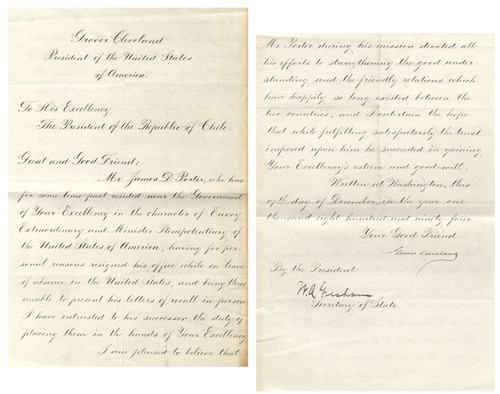 Grover Cleveland
President of the United States
of America.
To His Excellency
The President of the Republic of Chile.
Great and Good Friend:
Mr. James D. Porter, who has
for some time past resided near the Government
of Your Excellency in the character of Envoy
Extraordinary and Minister Plenipotentiary of
the United States of America, having for per-
sonal reasons resigned his office while on leave
of absence in the United States, and being thus
unable to present his letters of recall in person
I have entrusted to his successor the duty of
placing them in the hands of Your Excellency.
I am pleased to believe that
Mr. Porter during his mission devoted all
his efforts to strengthening the good under-
standing and the friendly relations which
have happily so long existed between the
two countries, and I entertain the hope
that while fulfilling satisfactorily the trust
imposed upon him he succeeded in gaining
Your Excellency's esteem and good-will.
Written at Washington, this
17th day of December, in the year one
thousand eight hundred and ninety four.
Your Good Friend
Grover Cleveland
By the President:
W. Q. Gresham
Secretary of State.